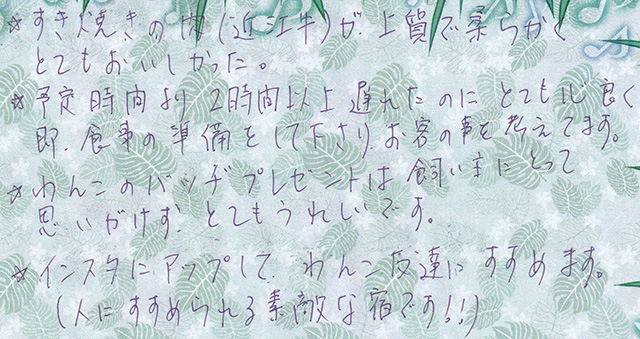 ☆すき焼きの肉(近江牛)が、上質で柔らかく
とてもおいしかった。
☆予定時間より2時間以上遅れたのにとても心良く
即、食事の準備をして下さり、お客の事を考えてます。
☆わんこのバッヂプレゼントは飼い主にとって
思いがけず、とてもうれしいです。
☆インスタにアップして、わんこ友達にすすめます。
(人にすすめられる素敵な宿です!!)